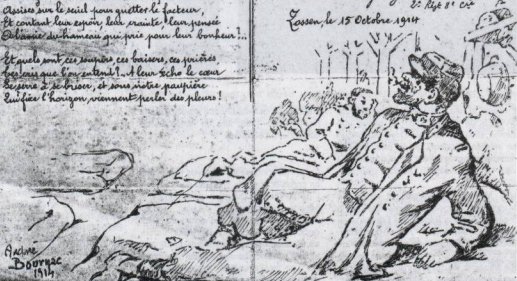 Assises sur le seuil pour guetter le facteur,
Et contant leur espoir, leur crainte, leur pensée
A l'amie du hameau qui prie pour leur bonheur!..
Et quels sont ces soupirs, ces baisers, ces prières,
Ces cris que l'on entend?.. A leur écho le cœur
Se serre à se briser, et sous notre paupière
Qui fixe l'horizon, viennent perler des pleurs!
2e Régt 8e Cie
Zossen, le 15 Octobre 1914
André
Bournac
1914